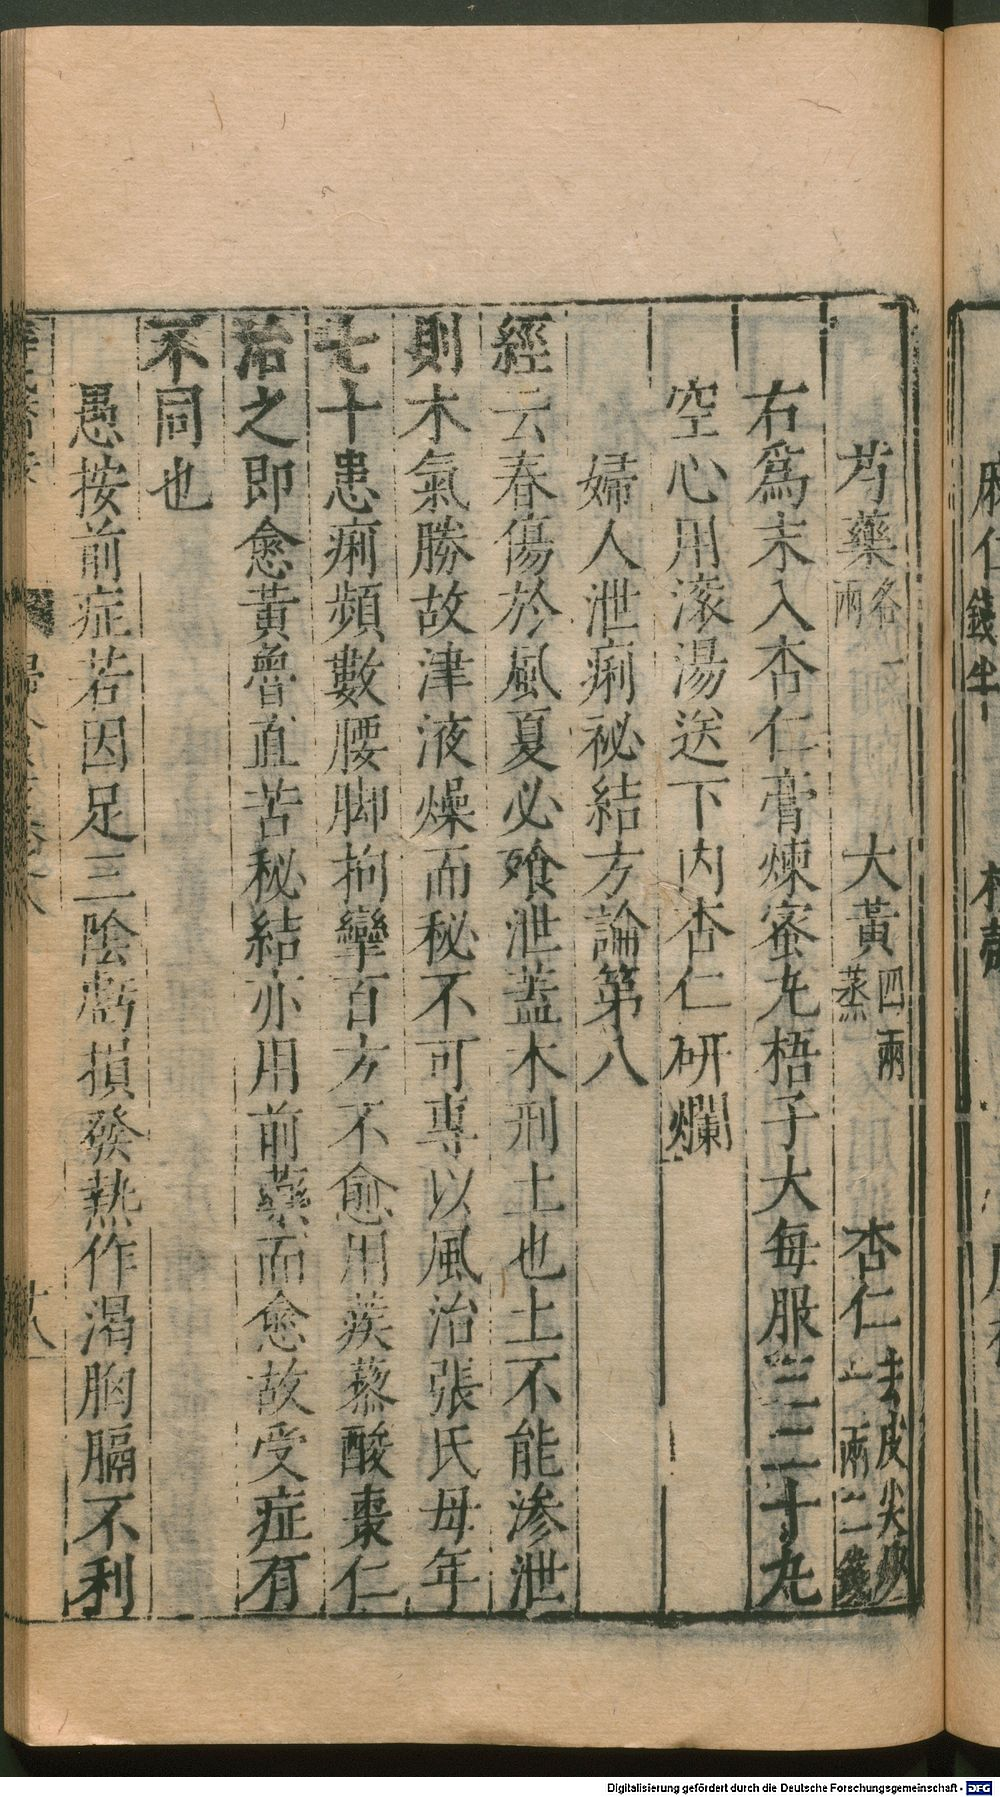 芍藥各一兩　大黃四兩蒸　杏仁去皮尖炒一兩二錢
右爲末入杏仁膏煉蜜丸梧子大每服三二十丸
空心用滾湯送下內杏仁研爛
婦人泄痢祕結方論第八
經云春傷於風夏必飧泄蓋木刑土也土不能滲泄
則木氣勝故津液燥而秘不可專以風治張氏母年
七十患痢頻數腰脚拘攣百方不愈用蒺藜酸棗仁
治之即愈黃魯直苦秘結亦用前藥而愈故受症有
不同也
愚按前症若因足三陰虧損發熱作渴胸膈不利
十八
麻仁
錢半
Digitalisierung gefördert durch die Deutsche Forschungsgemeinschaft - DFG